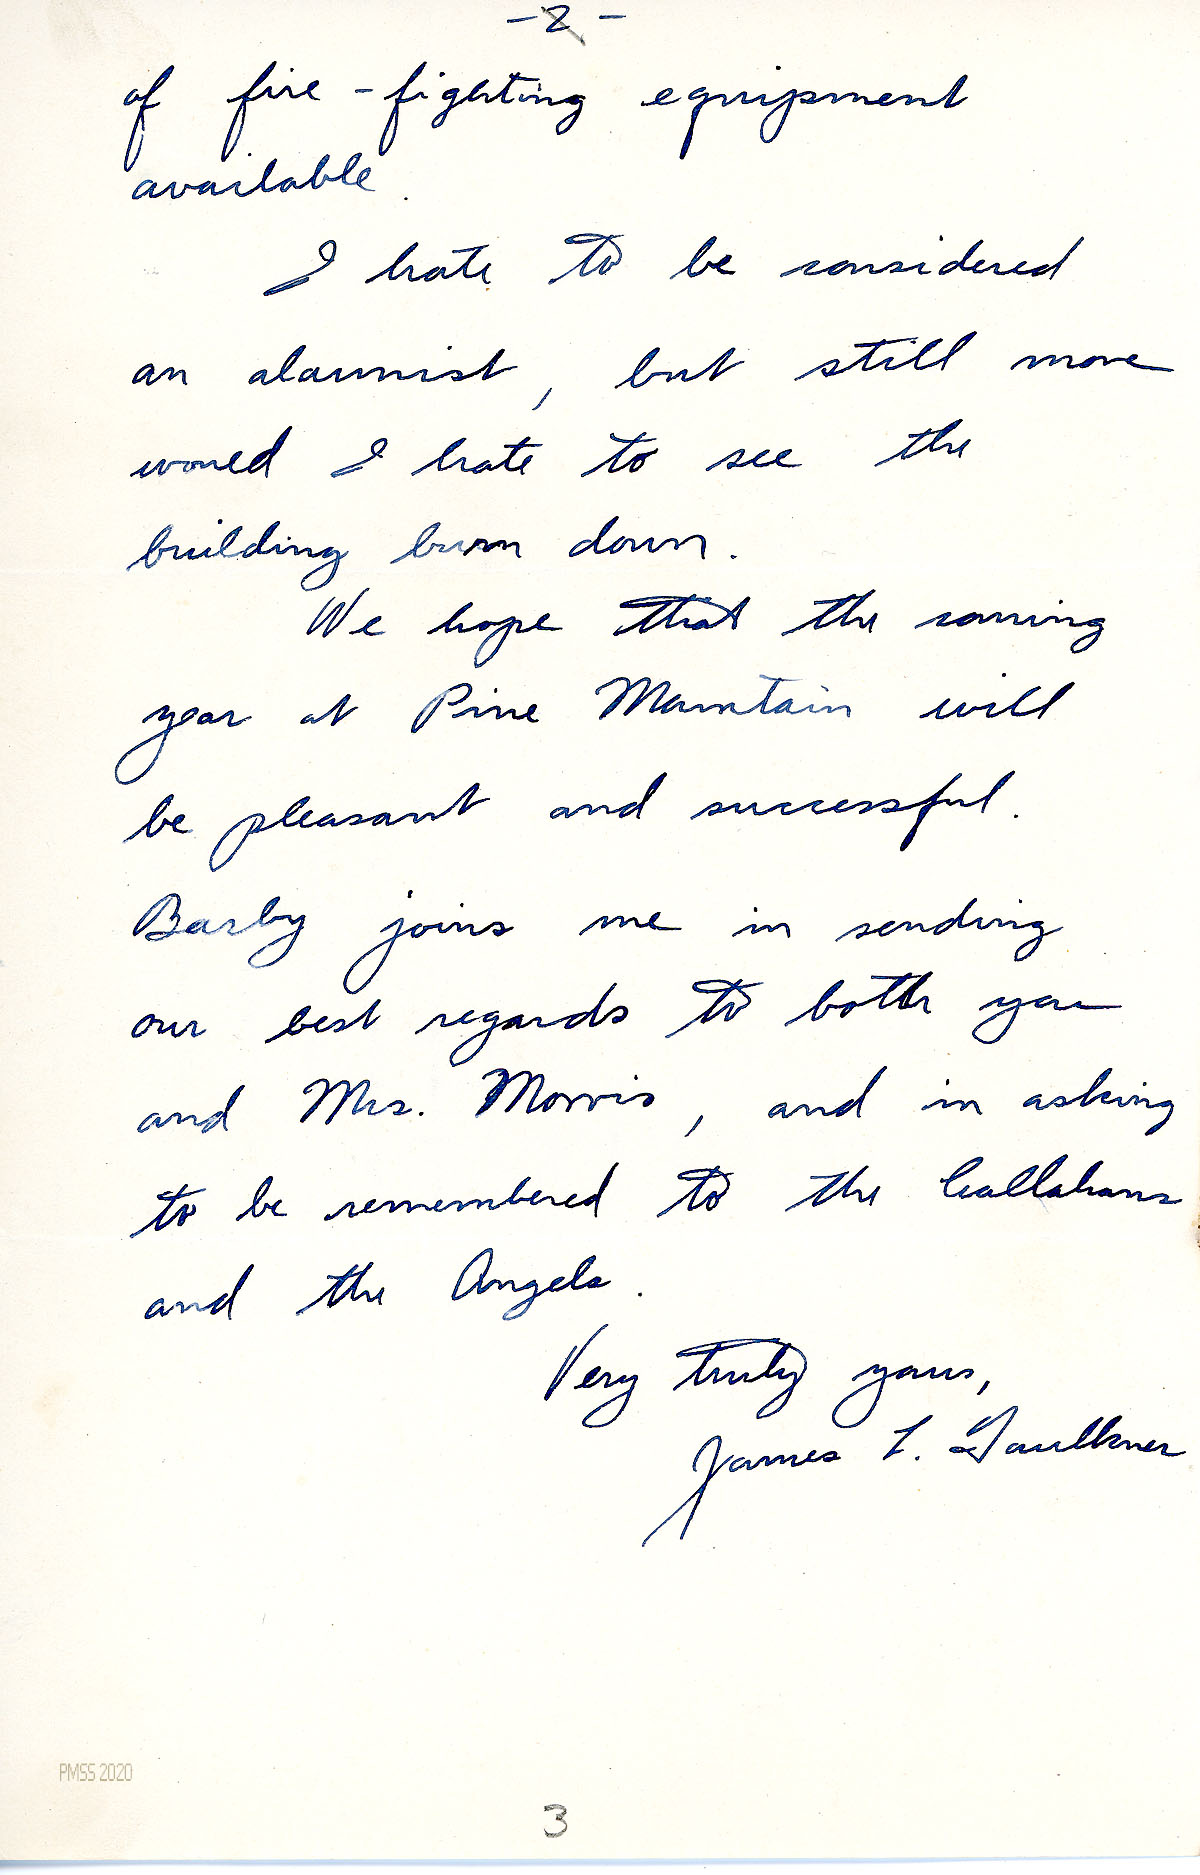 - 2 -
of fire-fighting equipment
available.
I hate to be considered
an alarmist, but still more
would I hate to see the
building burn down.
We hope that the coming
year at Pine Mountain will
be pleasant and successful.
Barby joins me in sending
our best regards to both you
and Mrs. Morris, and in asking
to be remembered to the Callahans
and the Angels.
Very truly yours,
James L. Faulkner
PMSS 2020
3